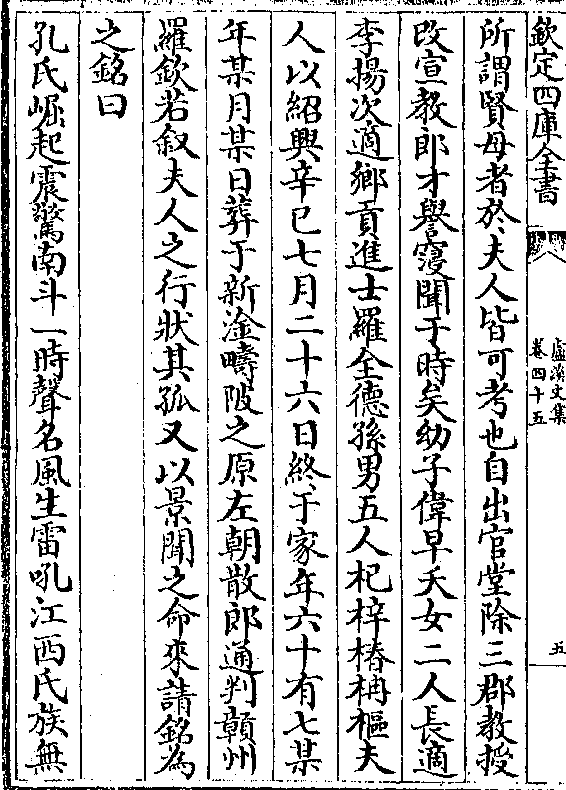 欽定四庫全書
盧溪文集
卷四十五
五
所謂賢母者於夫人皆可考也自出官堂除三郡教授
改宣教郎才譽寖聞于時矣幼子偉早夭女二人長適
李揚次適鄉貢進士羅全德孫男五人杞梓椿柟樞夫
人以紹興辛巳七月二十六日終于家年六十有七某
年某月某日葬于新淦疇陂之原左朝散郎通判贛州
羅欽若叙夫人之行狀其孤又以景聞之命來請銘為
之銘曰
孔氏崛起震驚南斗一時聲名風生雷吼江西氏族無